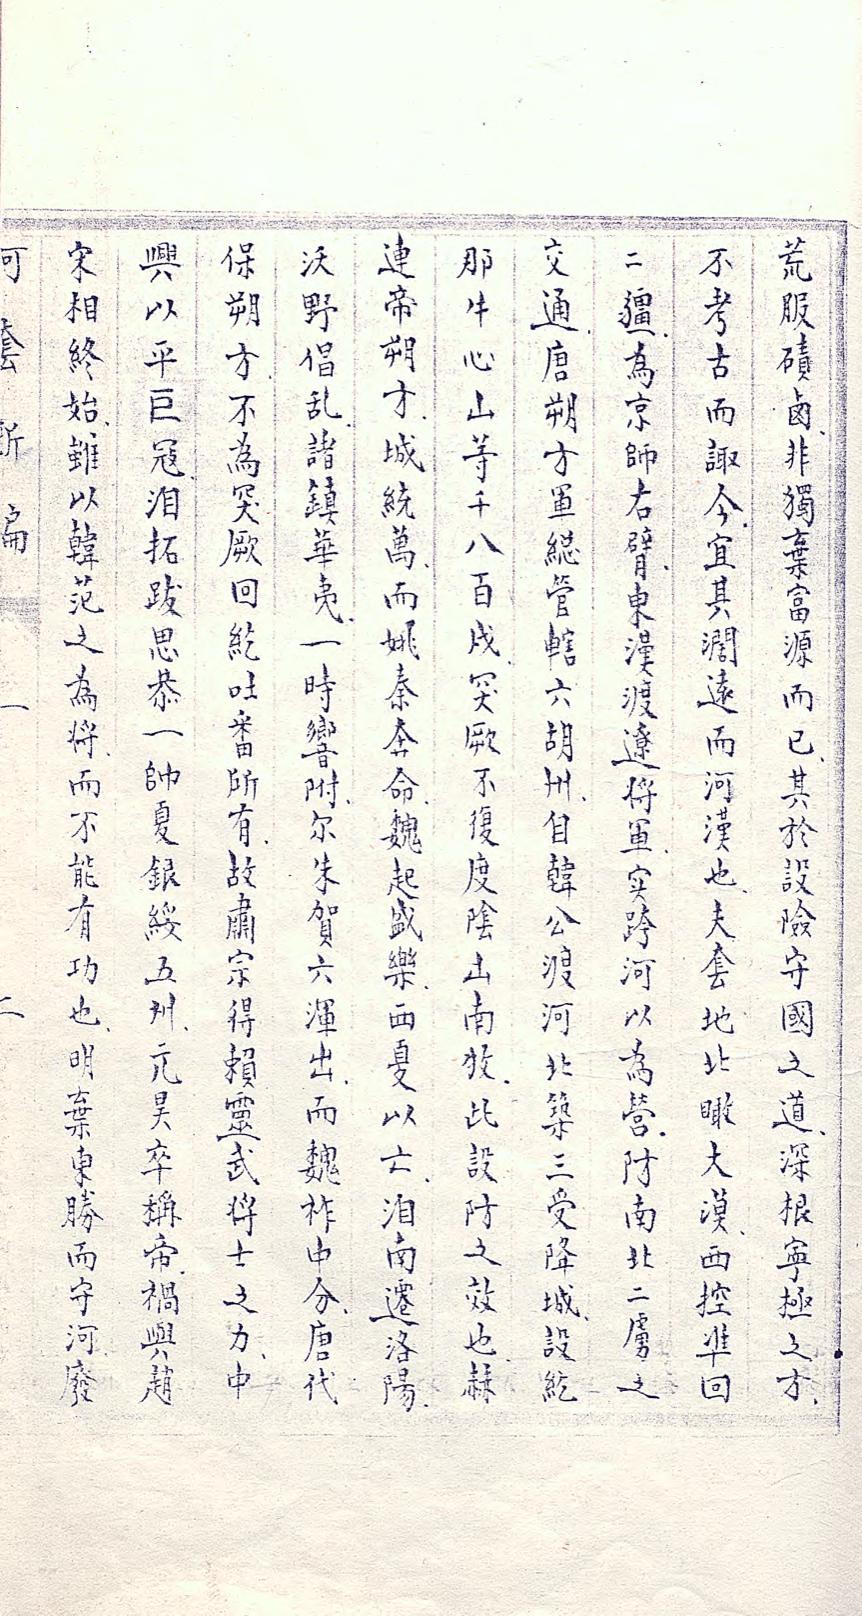 荒服磧鹵、非獨棄富源而已、其於設險守國之道、深根寧極之方、
不考古而諏今、宜其濶遠而河漢也、夫套地北瞰大漠、西控準回
二疆、為京師右臂、東漢渡遼將軍、实跨河以為營、防南北二虜之
交通、唐朔方軍緫管轄六胡州、自韓公渡河北築三受降城、設紇
那牛心山等千八百戍、突厥不復度陰山南牧、此設防之效也、赫
連帝朔方、城統萬、而姚秦奔命、魏起盛樂、西夏以亡、洎南遷洛陽、
沃野倡乱、諸鎮華夷、一時響附、尔朱賀六渾出、而魏祚中分、唐代
保朔方、不為突厥回紇吐番所有、故肅宗得賴靈武將士之力、中
興以平巨冦、洎拓跋思恭一帥夏銀綏五州、元昊卒稱帝、禍與趙
宋相終始、雖以韓范之為將、而不能有功也、明棄東勝而守河、廢
河套新編 一 二